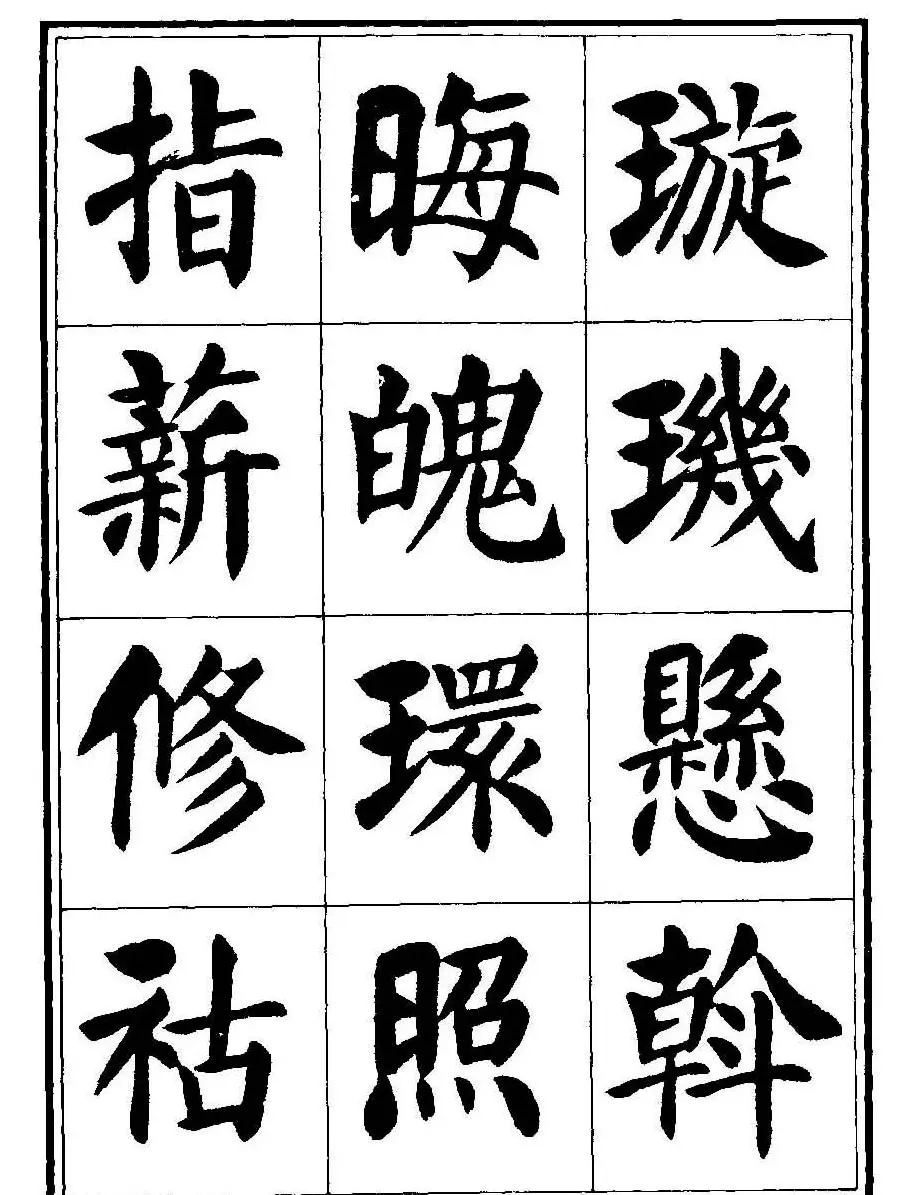 璇璣懸斡
晦魄環照
指薪修祜